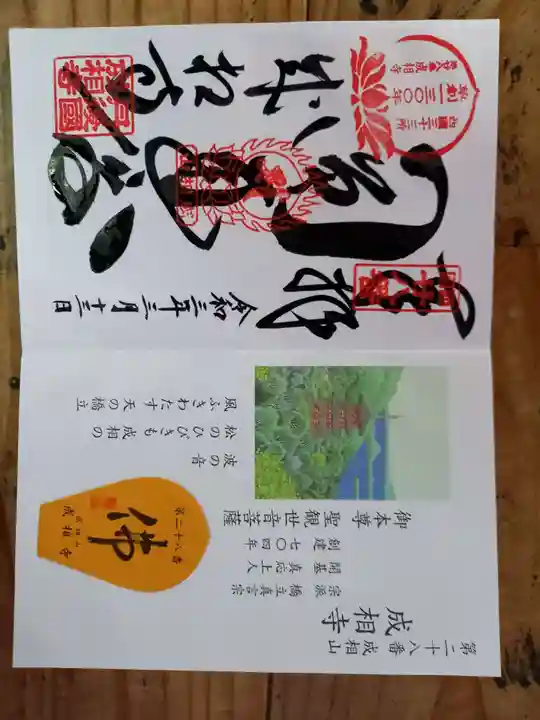 第二十八番 成相山
成相寺
宗派 橋立真言宗
開基 真応上人
創建 七〇四年
御本尊 聖観世音菩薩
波の音
松のひびきも成相の
風ふきわたす天の橋立
第二十八番
佛
成相山
成相寺
奉拝
令和三年三月十三日
成相寺
西国三十三所
草創一三〇〇年